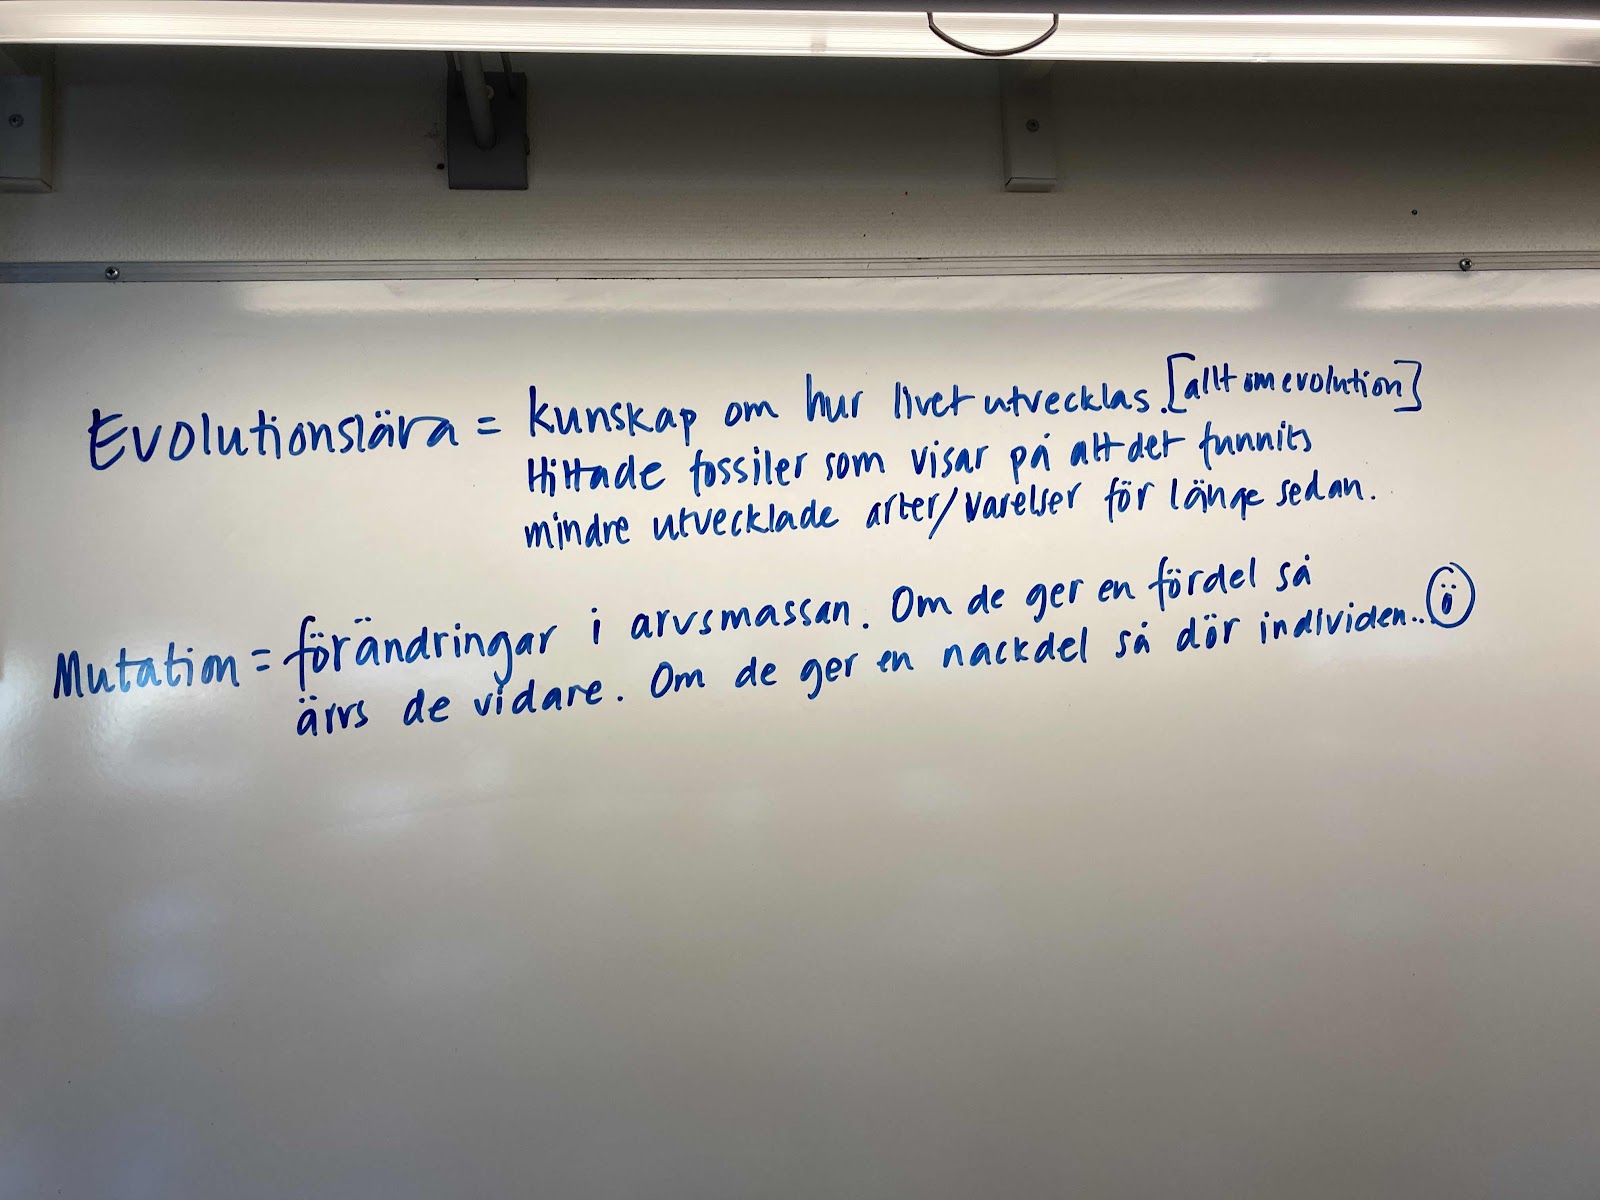 Evolutionslära = kunskap om hur livet utvecklas. [allt om evolution]
Hittade fossiler som visar på att det funnits
mindre utvecklade arter/varelser för länge sedan.
Mutation = förändringar i arvsmassan. Om de ger en fördel så
ärvs de vidare. Om de ger en nackdel så dör individen...